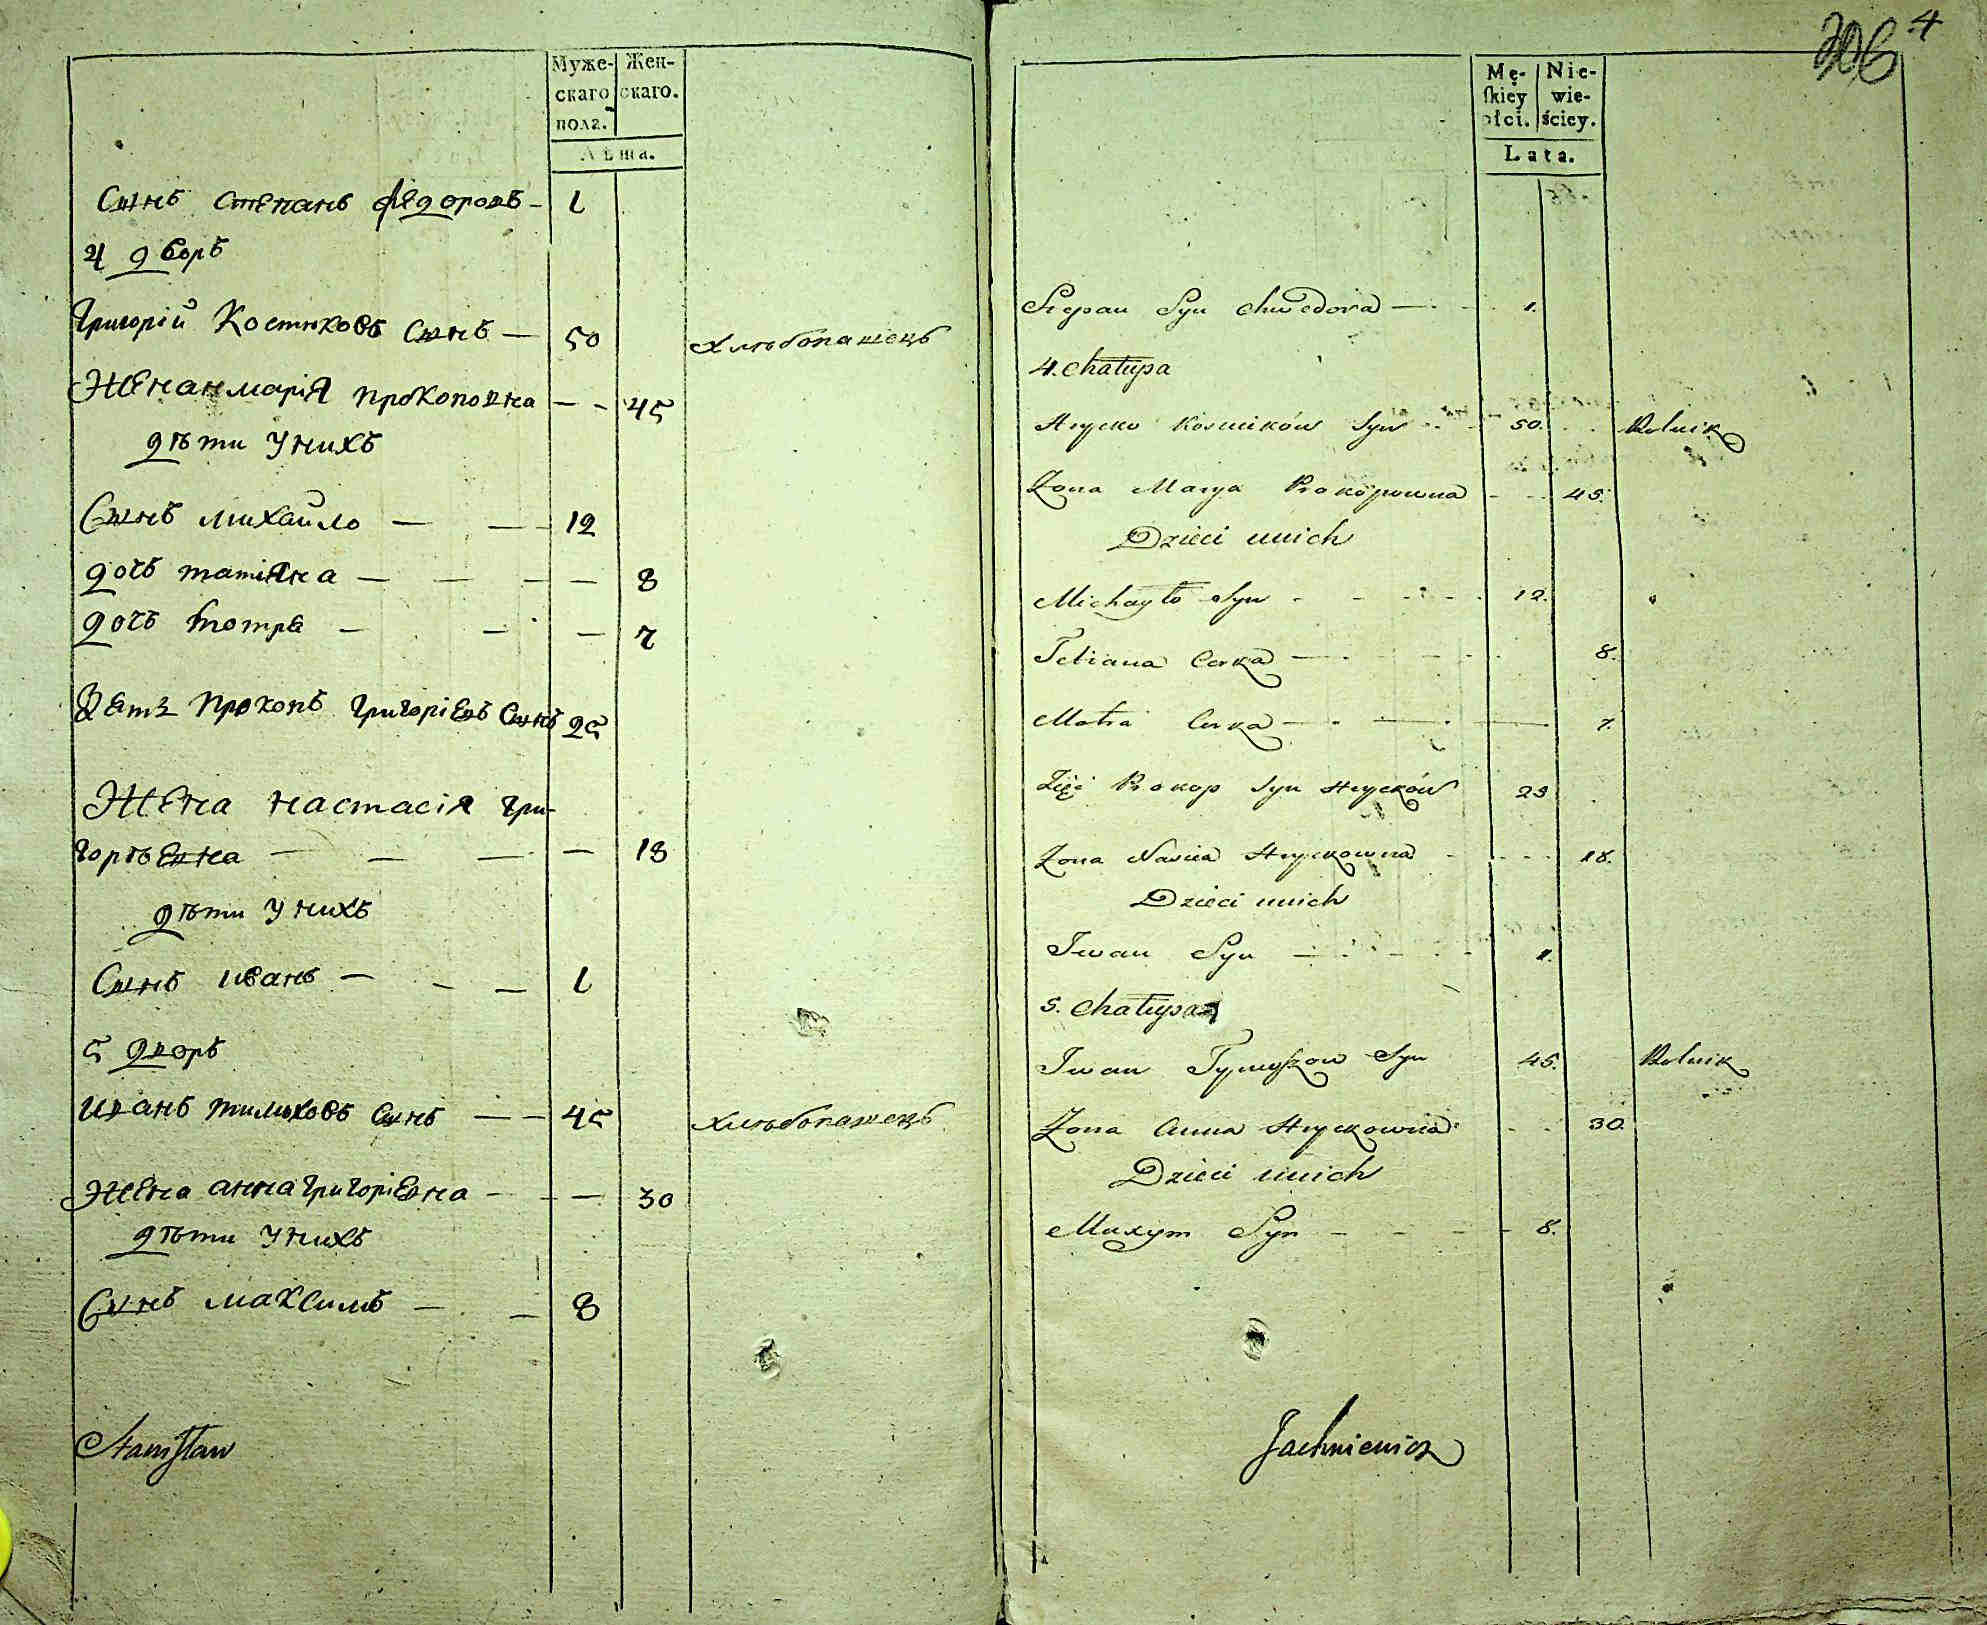 Муже-
скаго
полг.
Жен-
скаго.
Лѣта.
Сынъ Степанъ Федоровъ — 1
4 дворъ
Григорій Костюковъ Сынъ — 50 Хлѣбопашецъ
Жена Марія Прокоповна — — 45
дѣти у нихъ
Сынъ Михайло — — 12
дочь татіяна — — — — 8
дочь мотря — — — 7
Зять Прокопъ Григоріевъ Сынъ 25
Жена настасія Гри-
горѣевна — — — — 18
дѣти у нихъ
Сынъ иванъ — — — 1
5 дворъ
иванъ тимшковъ Сынъ — — 45 Хлѣбопашецъ
Жена анна григоріевна — — — 30
дѣти у нихъ
Сынъ максимъ — — 8
Stanisław
306 4
Mę-
skiey
płci.
Nie-
wie-
ściey.
Lata.
Stepan Syn Chwedora — 1.
4. Chałupa
Hrycko Kostiuków Syn 50. Rolnik
Żona Marya Prokopowna — 45.
Dzieci unich
Michayło Syn 12.
Tetiana Corka — 8.
Motra Corka — 7.
Zięć Prokop Syn Hryckow 25
Żona Nascia Hryckowna 18.
Dzieci unich
Iwan Syn — 1.
5. Chałupa
Iwan Tymoszow Syn 45. Rolnik
Żona Anna Hryckowna 30.
Dzieci unich
Maxym Syn 8.
Jachniewicz